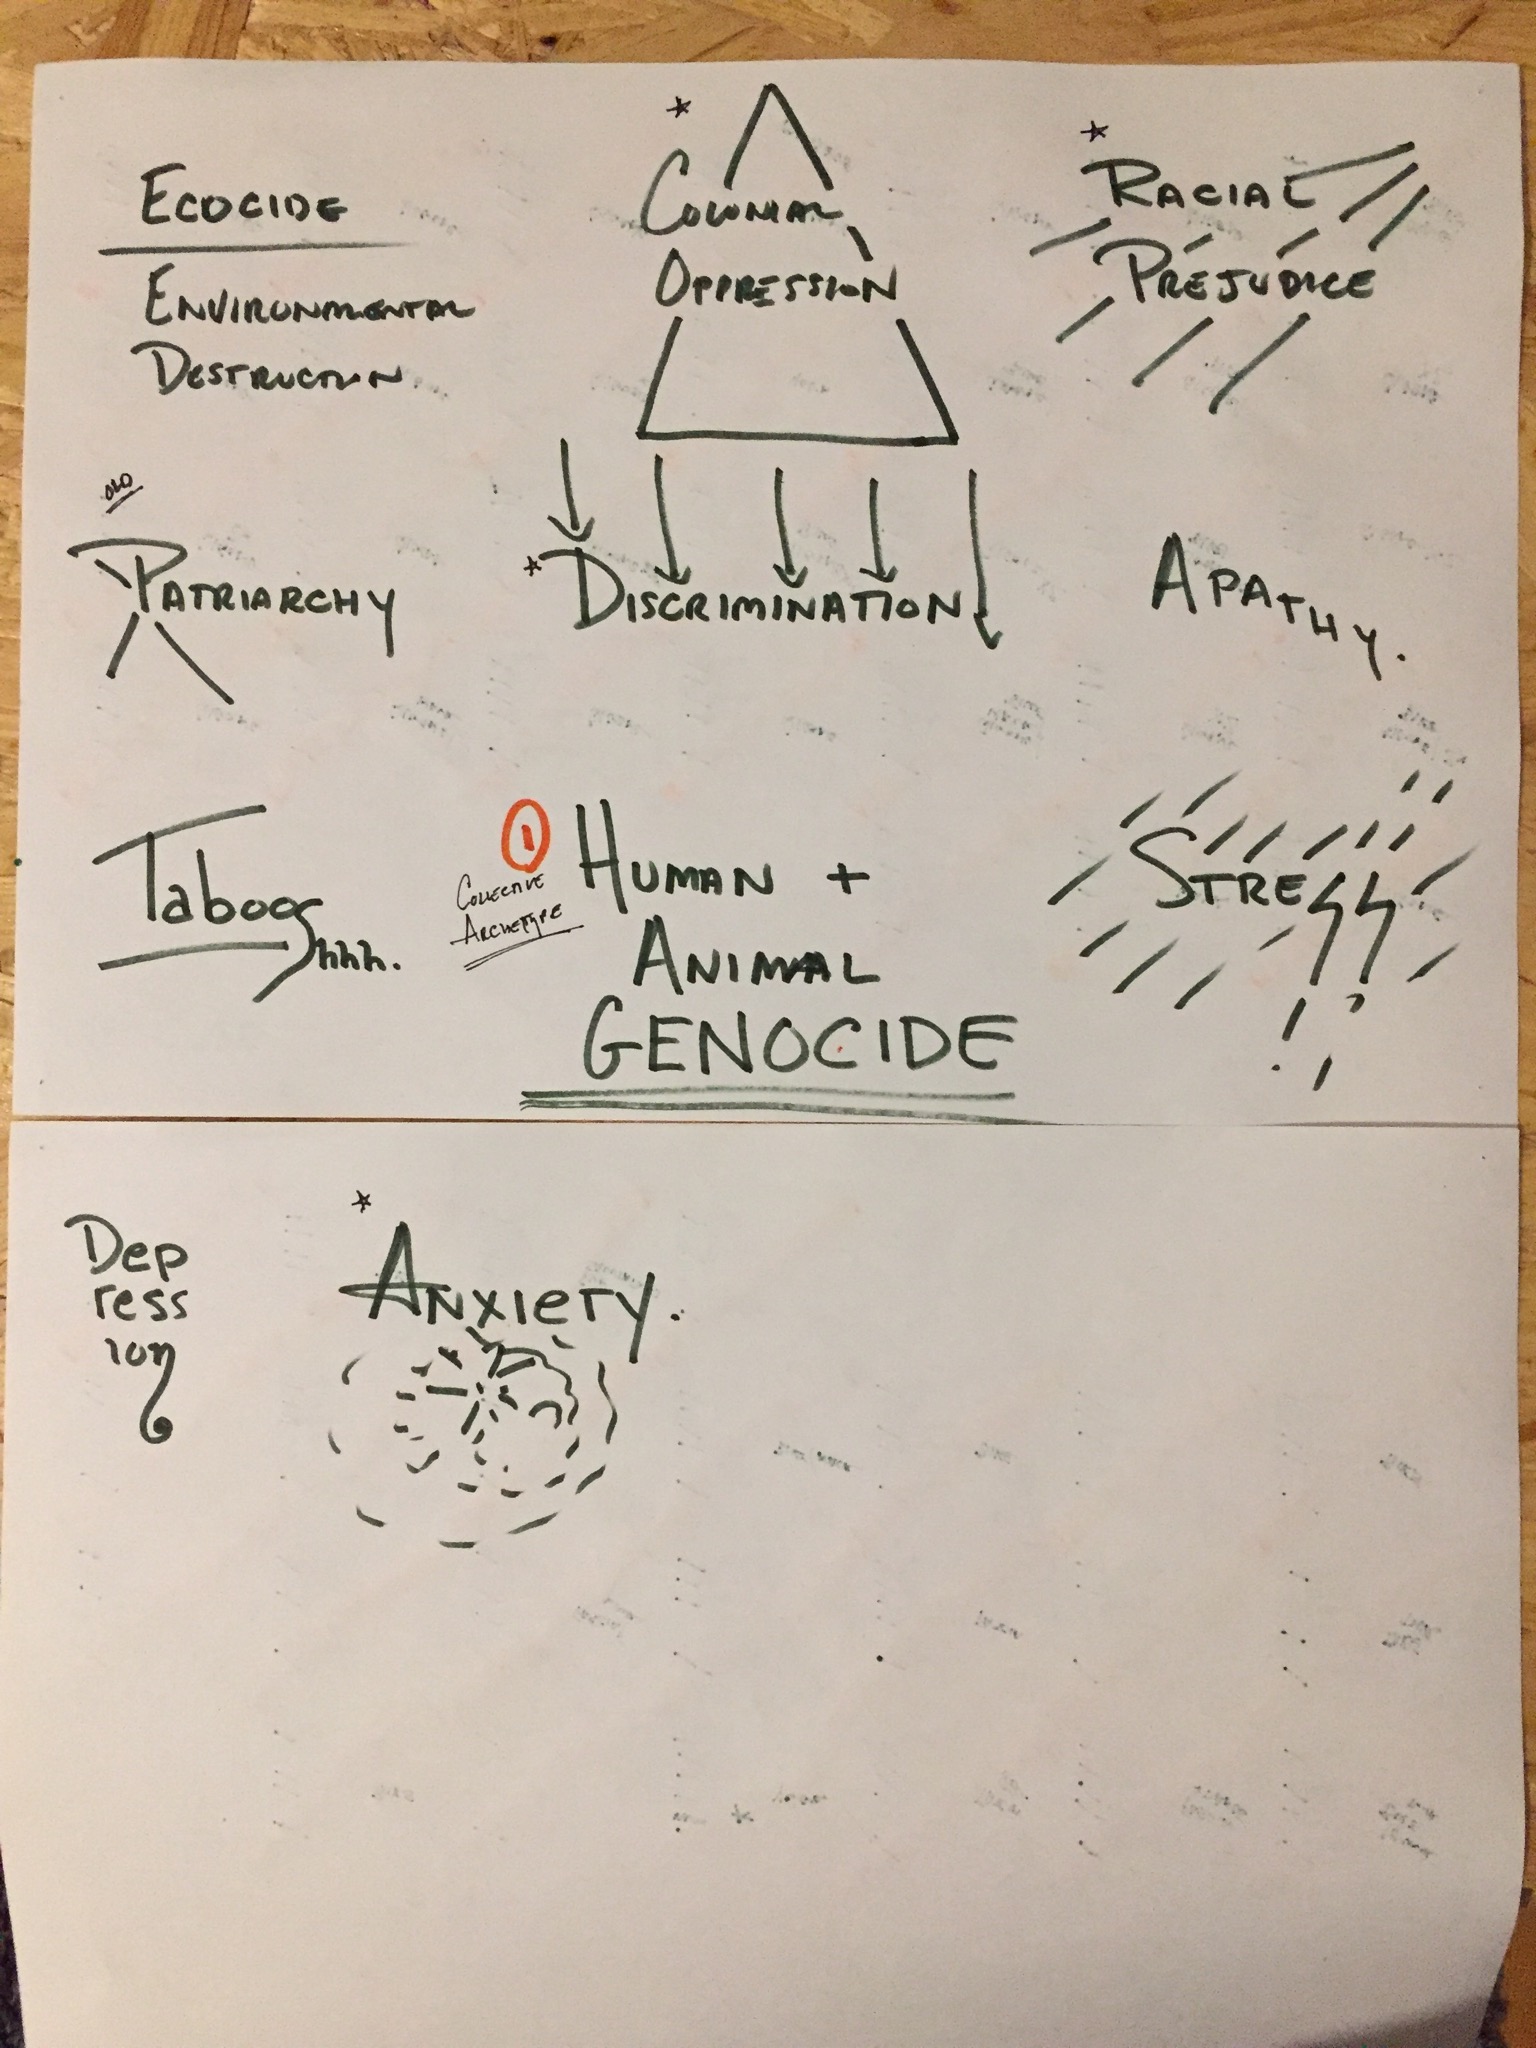 ECOCIDE
ENVIRONMENTAL
DESTRUCTION.
COLONIAL
OPPRESSION
RACIAL
PREJUDICE
OLD
PATRIARCHY
DISCRIMINATION
APATHY.
TabooShhh.
1
COLLECTIVE
ARCHETYPE
HUMAN +
ANIMAL
GENOCIDE
STRESS
Dep
ress
ion
ANXIETY.